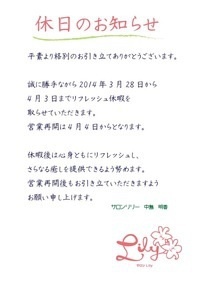 休日のお知らせ
平素より格別のお引き立てありがとうございます。
誠に勝手ながら2014年3月28日から
4月3日までリフレッシュ休暇を
取らせていただきます。
営業再開は4月4日からとなります。
休暇後は心身ともにリフレッシュし、
さらなる癒しを提供できるよう努めます。
営業再開後もお引き立ていただきますよう
お願い申し上げます。
サロンリリー 中
Lily